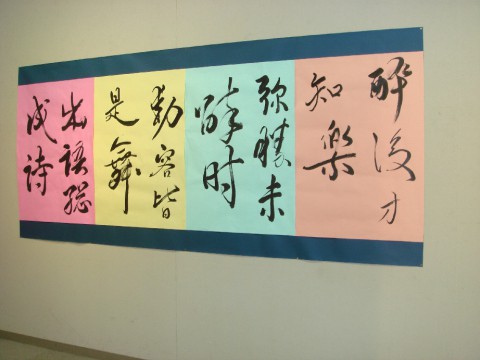 醉後才
知樂
弥勝未
醉时
動容皆
是舞
出語総
成詩